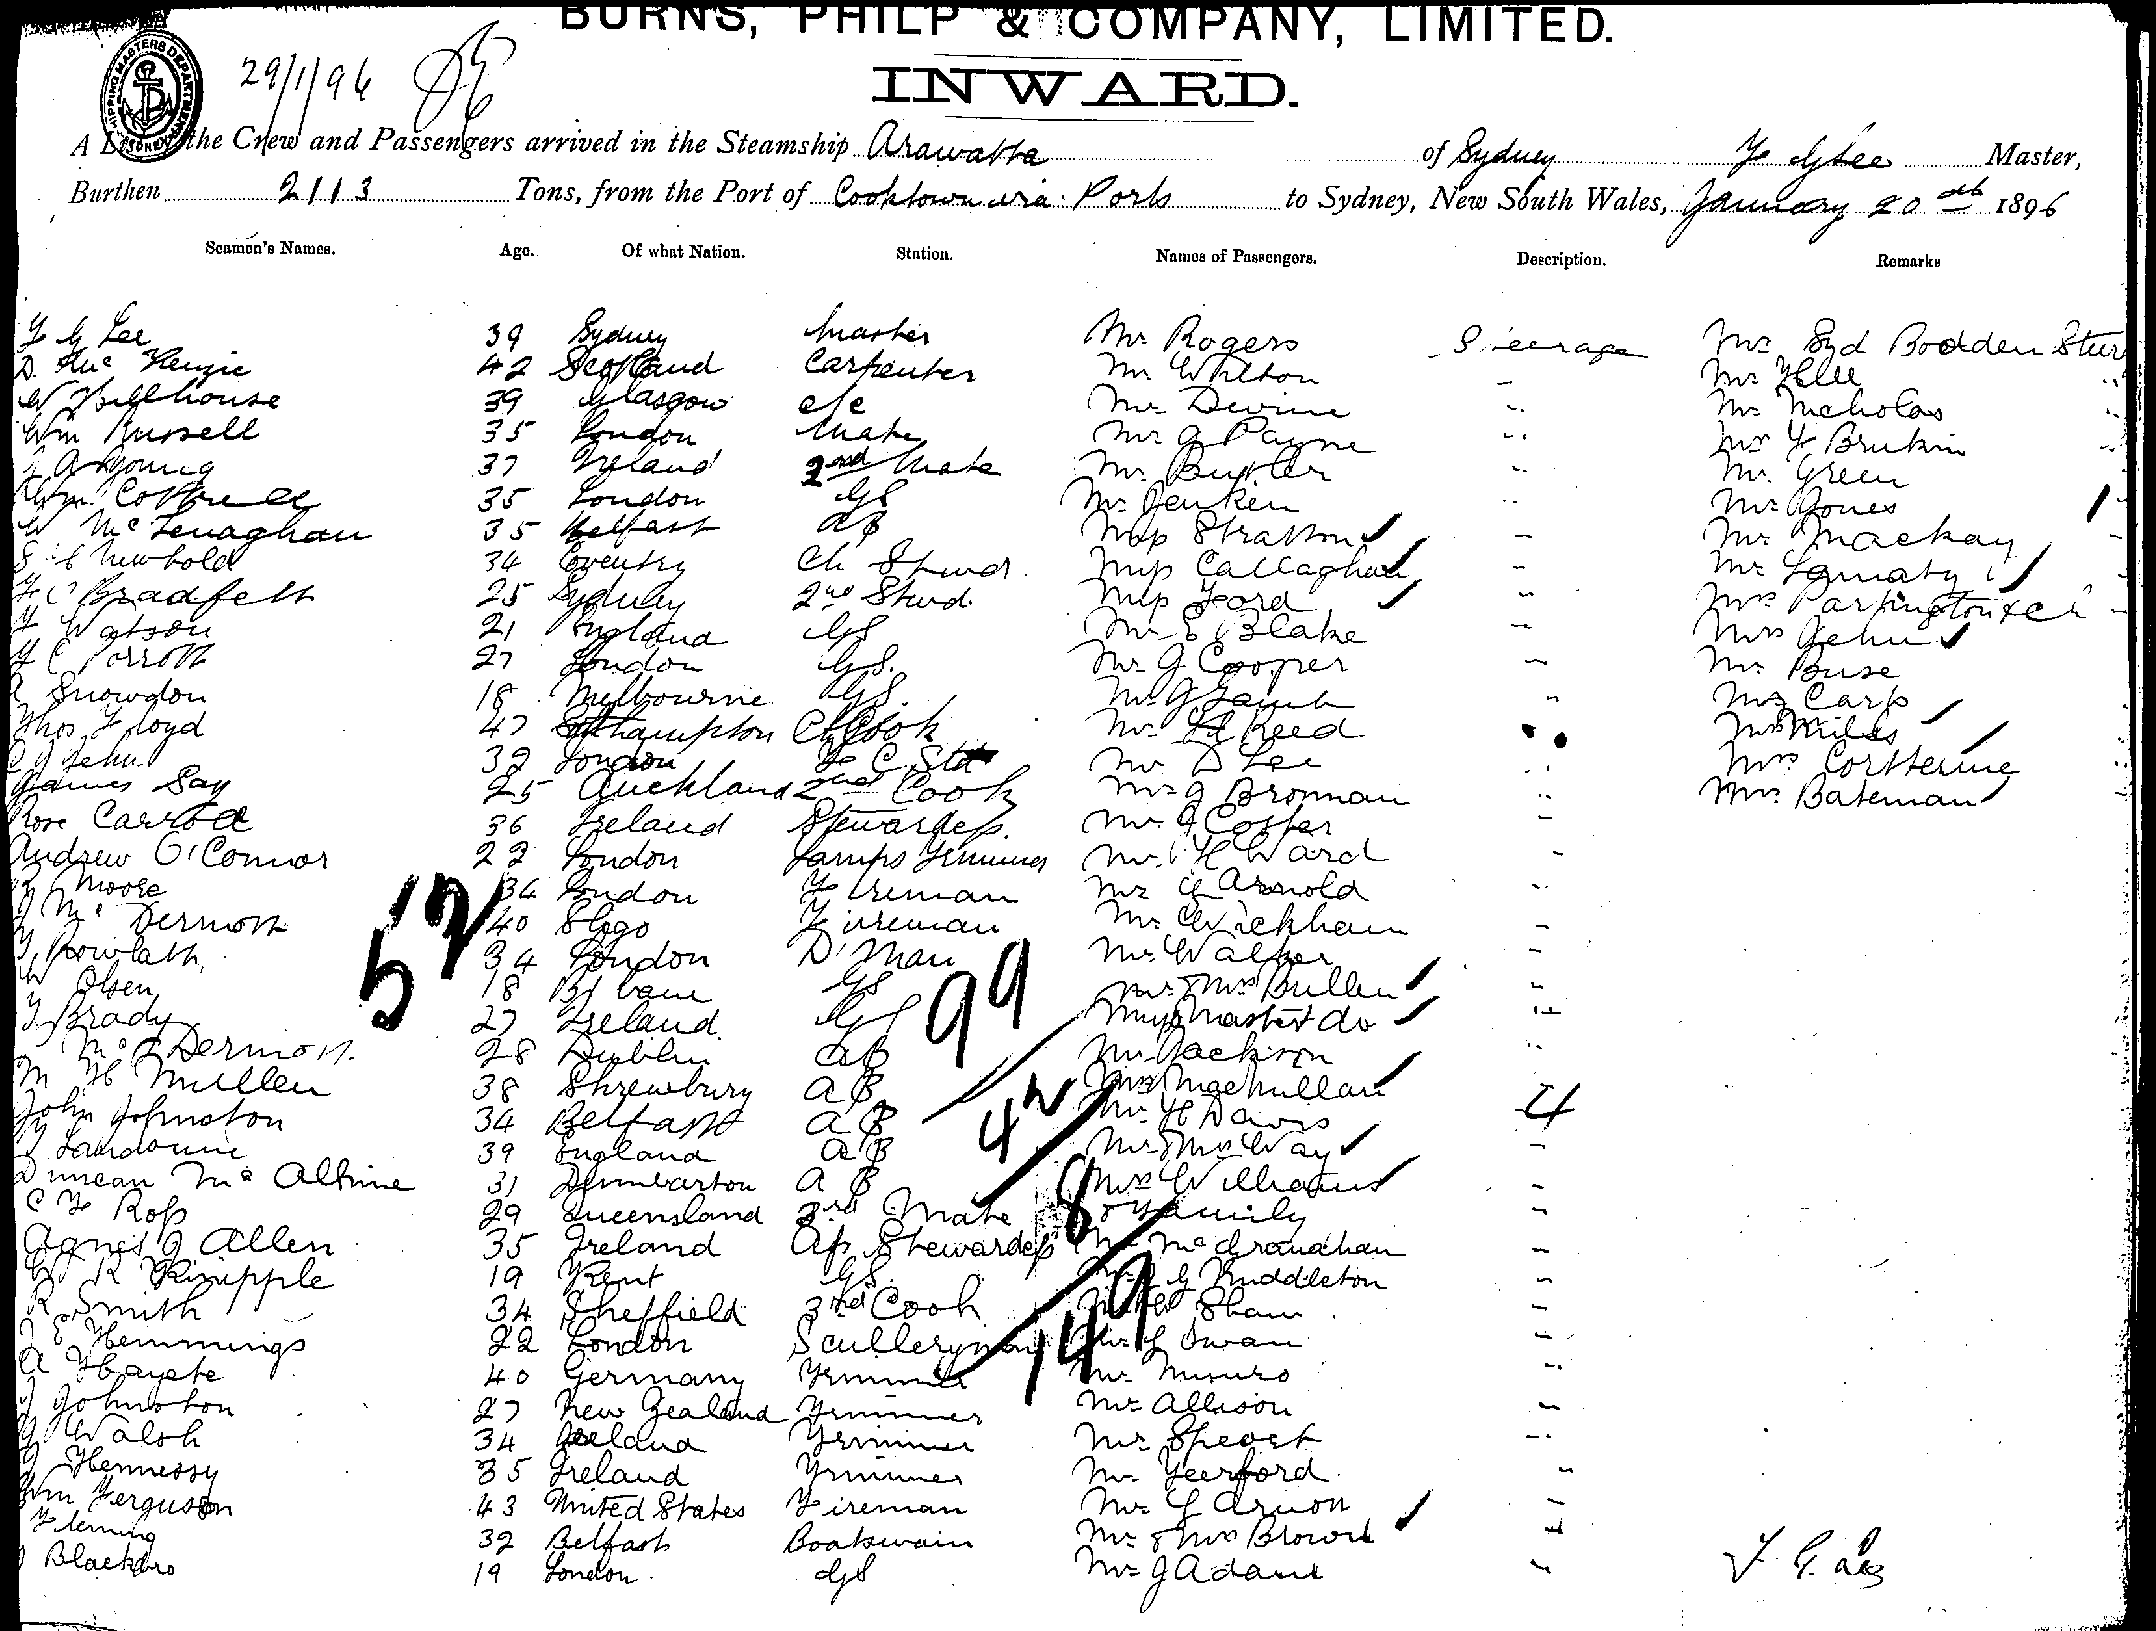 BURNS, PHILP & COMPANY, LIMITED.
INWARD.
29/1/96
A the Crew and Passengers arrived in the Steamship Arawatta of Sydney Lee Master,
Burthen 2113 Tons, from the Port of Cooktown via Ports to Sydney, New South Wales, January 20th 1896
Seamen's Names. Age. Of what Nation. Station. Names of Passengers. Description. Remarks
G Lee 39 Sydney Master Mr Rogers Steerage Mr Syd Bodden
D. McKenzie 42 Scotland Carpenter Mr Whilton
39 Glasgow Mr Devine Mr Nicholas
Wm Russell 35 London Mate Mr Payne
A Young 37 Ireland 2nd Mate Mr Butler Mr Green
Wm Cottrell 35 London GS Mr Jenken Mr Jones
W McLenaghan 35 Belfast AB Miss Stratton Mr Mackay
Newbold 34 Coventry Ch Stwd. Miss Callaghan
Bradfelt 25 Sydney 2nd Stwd. Miss Ford Mrs Partington & Ch
Watson 21 England GS Mr E Blake Mrs Jehu
C Parrott 27 London GS. Mr J Cooper Mr Buse
Snowdon 18 Melbourne GS Mr G Lamb Carp
Thos Floyd 47 Sthampton Ch Cook Mr Reed Mrs Miles
Jehu 39 London Mr D Lee Mrs
James Say 25 Auckland 2nd Cook Mr J Bronman Mrs Bateman
Rose Carroll 36 Ireland Stewardess. Mr J Coster
Andrew O'Connor 22 London Lamps Trimmer Mr H Ward
Moore 34 London Fireman Mr Arnold
J McDermott 40 Sligo Fireman Mr Wickham
52
Rowlath 34 London D'Man Mr Walker
W Olsen 18 Bisbane GS Mr & Mrs Bullen
99
Brady 27 Ireland. GS Miss & Master do
McDermott. 28 Dublin AB Mr Jackson
M Mullen 38 Shrewbury AB Mrs MacMullan
42
John Johnston 34 Belfast AB Mr H Davis 4
Lansdowne 39 England AB Mr & Mrs Way
Duncan McAlpine 31 Dumbarton AB Mrs Williams
8
C F Ross 29 Queensland 3rd Mate & Family
Agnes J Allen 35 Ireland As Stewardess Mr McGranahan
R Knipple 19 Kent GS. Mr G Middleton
149
R Smith 34 Sheffield 3rd Cook Mr Sham
Hemmings 22 London Sculleryman Mr Swan
A Hayete 40 Germany Trimmer Mr Munro
J Johnston 27 New Zealand Trimmer Mr Allison
Walsh 34 Ireland Trimmer Mr
J Hennessy 35 Ireland Trimmer Mr Yeerford
Wm Ferguson 43 United States Fireman Mr
Fleming 32 Belfast Boatswain Mr & Mrs Brown
19 London GS Mr J Adams